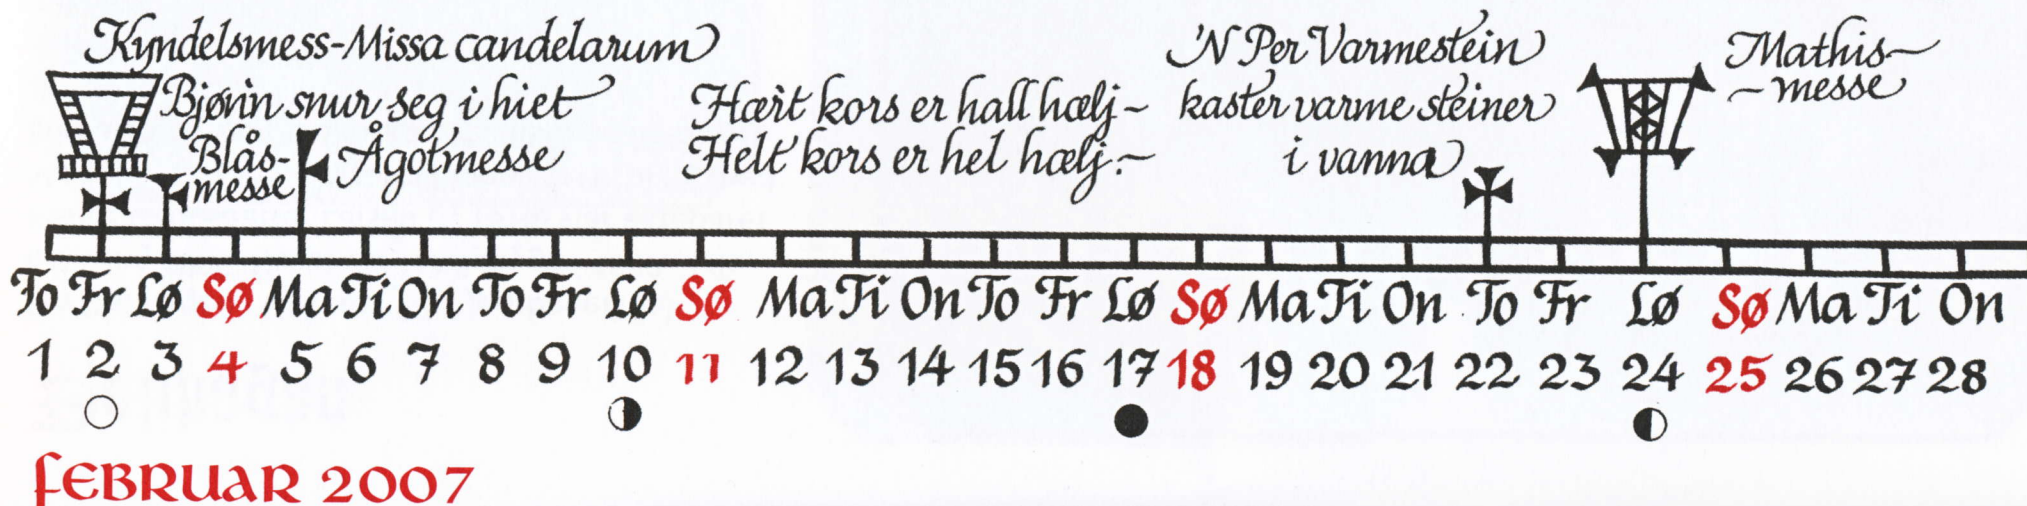 Kyndelsmess-Missa candelarum
Bjønn snur seg i hiet
Blås-
messe
Ågotmesse
Hært kors er hall hælj~
Helt kors er hel hælj.~
'N Per Varmestein
kaster varme steiner
i vanna
Mathis~
~messe
To Fr Lø Sø Ma Ti On To Fr Lø Sø Ma Ti On To Fr Lø Sø Ma Ti On To Fr Lø Sø Ma Ti On
1 2 3 4 5 6 7 8 9 10 11 12 13 14 15 16 17 18 19 20 21 22 23 24 25 26 27 28
FEBRUAR 2007